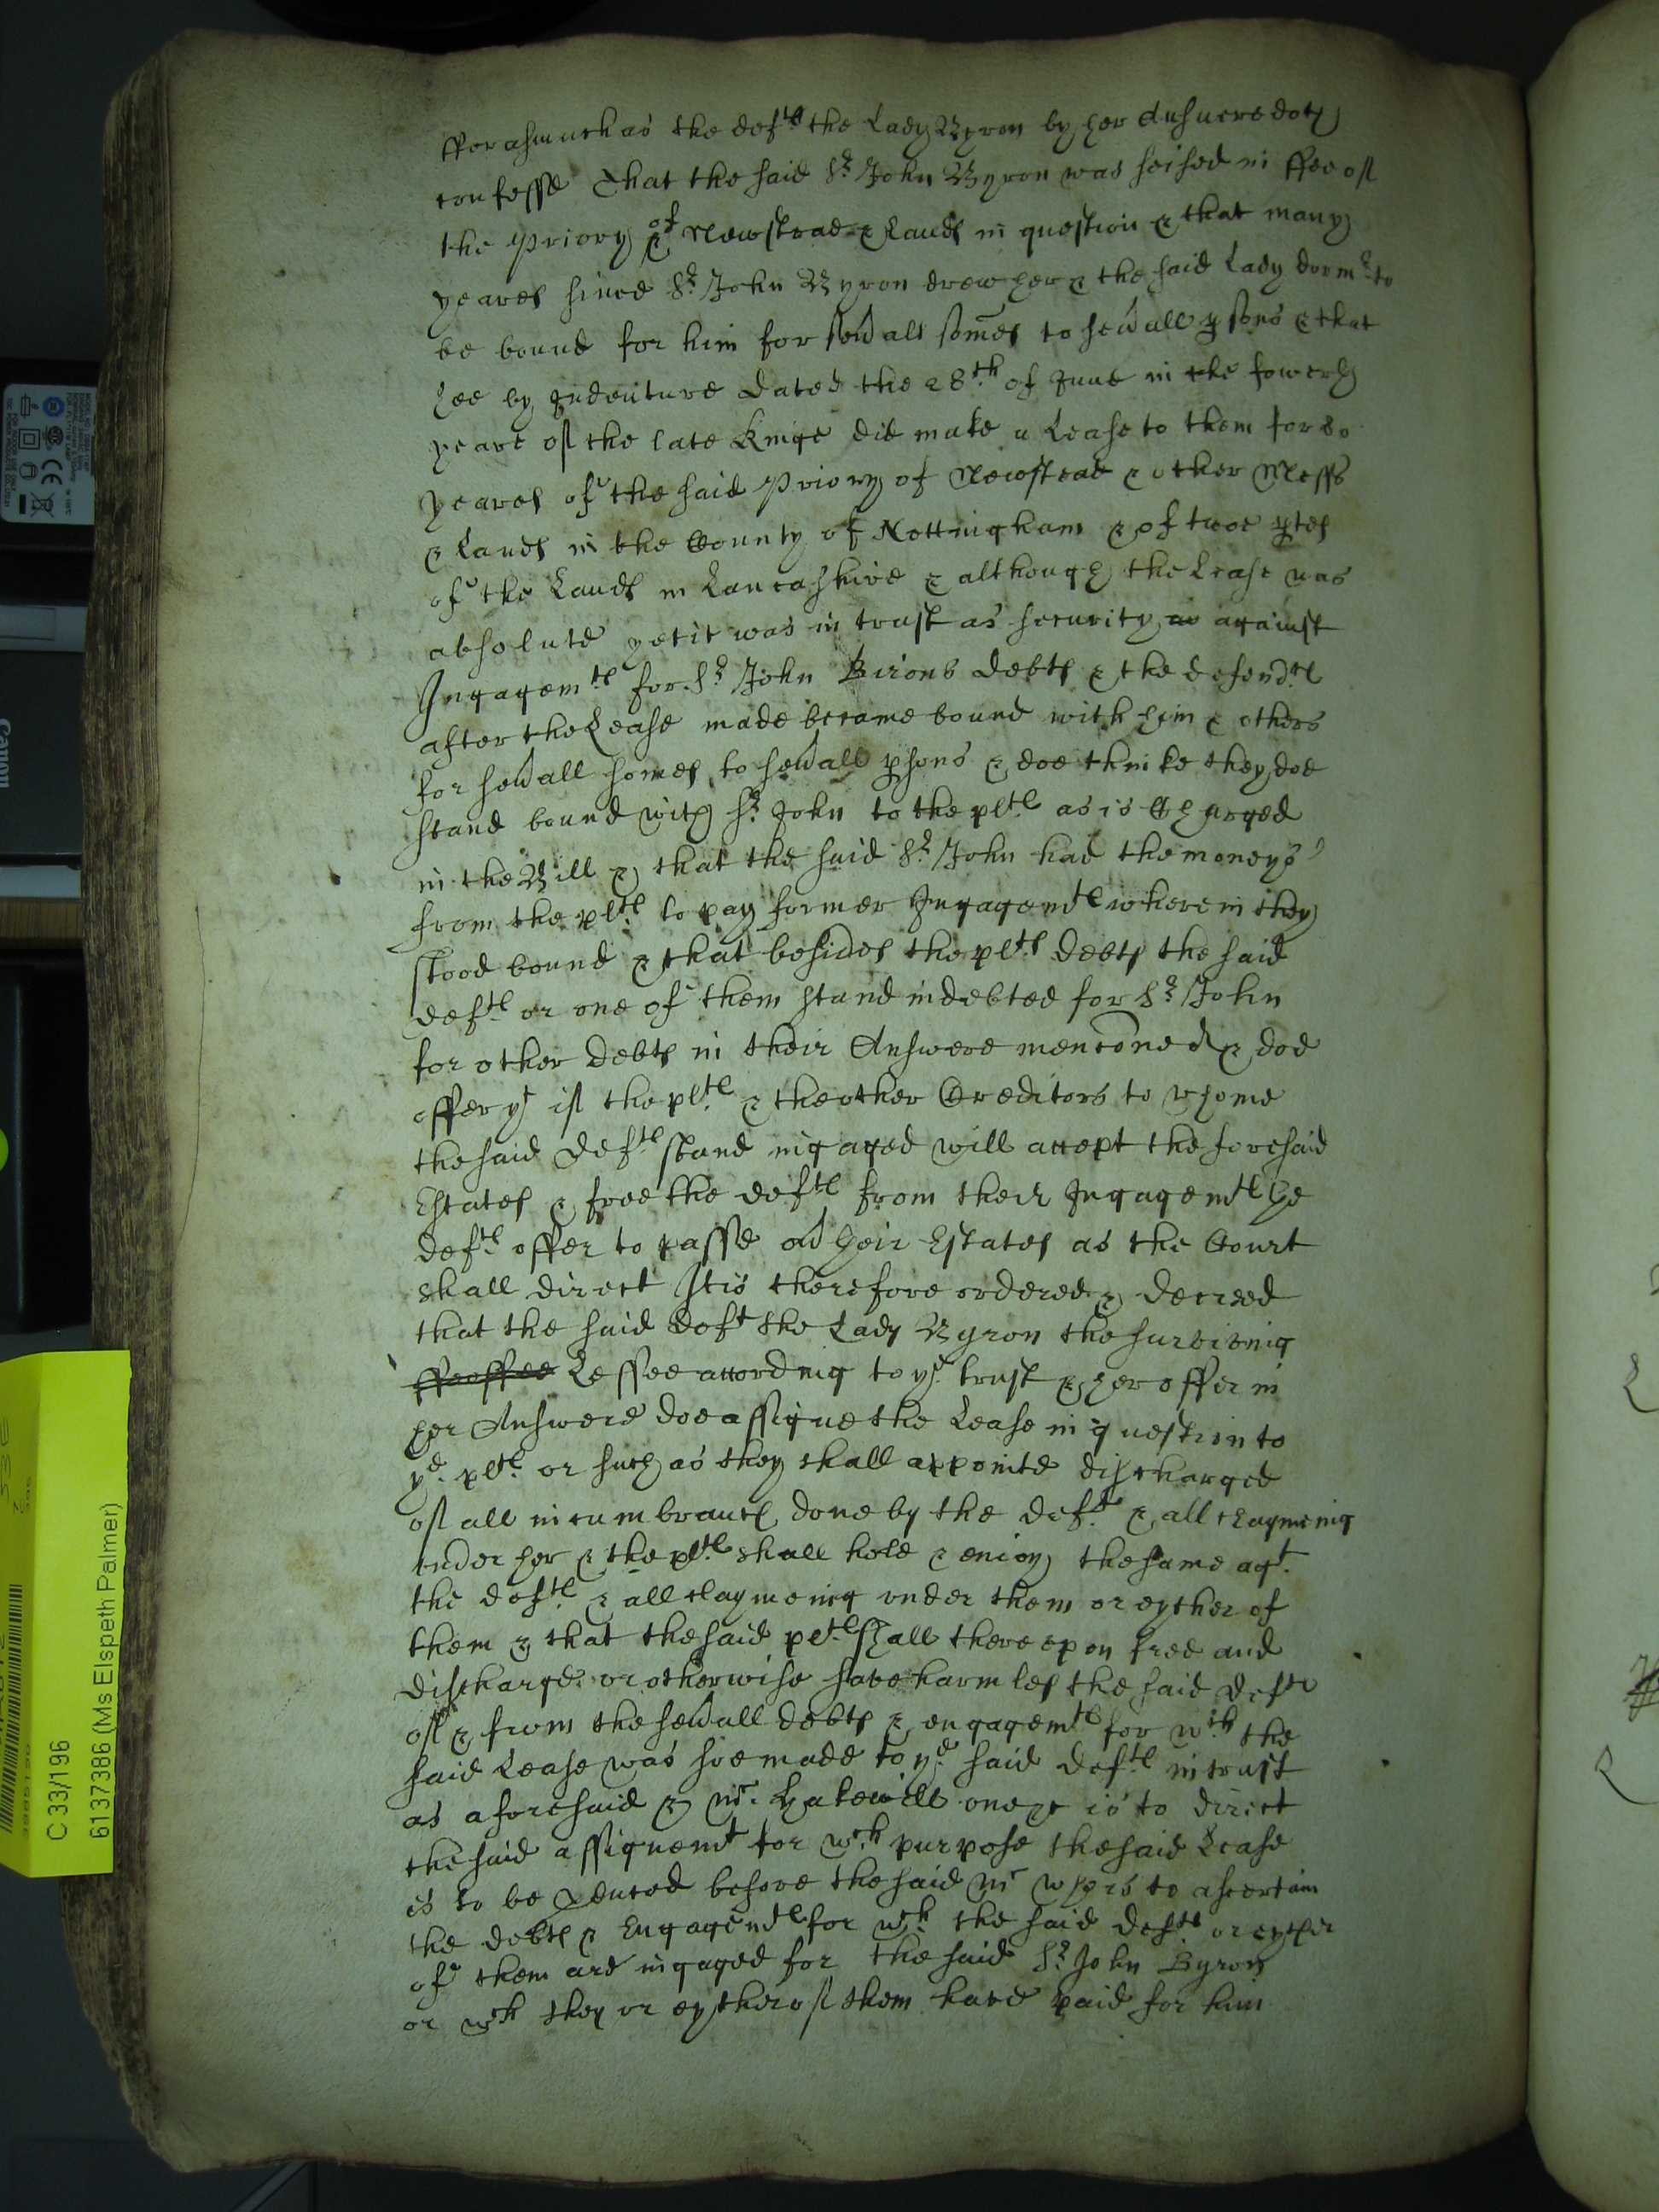 fforasmuch as the deftes the Lady Byron by her Answere doth
confesse That the said Sr. John Byron was seised in ffee of
the Priory of Newstead & Lands in question & that many
yeares since Sr. John Byron drew her & the said Lady Dormr. to
be bound for him for sevall somes to sevall psons & that
hee by Indenture dated the 28th. of June in the fowerth
yeare of the late Kinge did make a Lease to them for 80
yeares of the said Priory of Newstead & other Messs
& Lands in the County of Nottingham & of twoe ptes
of the Lands in Lancashire & although the Lease was
absolute yet it was in trust as security as against
Ingagemtes for Sr. John Birons debtes & the defendtes
after the Lease made became bound with him & others
for sevall somes to sevall psons & doe thinke they doe
stand bound with Sr. John to the pltes as is Charged
in the Bill & that the said Sr. John had the moneys
from the pltes to pay former Ingagemtes wherein they
stood bound & that besides the pltes debtes the said
deftes or one of them stand indebted for Sr. John
for other debtes in their Answere menconed & doe
offer yt if the pltes & the other Creditors to whome
the said deftes stand ingaged will accept the foresaid
Estates & free the deftes from their Ingagemtes he
deftes offer to passe ov their Estates as the Court
shall direct It is therefore ordered & decreed
that the said deft the Lady Byron the surviving
ffeoffee Lessee according to ye. trust & her offer in
her Answere doe assigne the Lease in question to
ye. pltes or such as they shall appointe discharged
of all incumbrances done by the deft & all Claymeing
under her & the pltes shall hold & enioy the same agt.
the deftes & all claymeing under them or eyther of
them & that the said pltes shall thereupon free and
discharge or otherwise save harmles the said deftes
of & from the sevall debtes & engagemtes for wch the
said Lease was soe made to ye. said deftes in trust
as aforesaid & mr. Hakewill one &c is to direct
the said assignemt for wch purpose the said Lease
is to be pduced before the said mr who is to ascertain
the debtes & Engagemtes for wch the said deftes or eyther
of them are ingaged for the said Sr. John Byron
or wch they or eyther of them have paid for him
C 33/196
6137386 (Ms Elspeth Palmer)
Canon